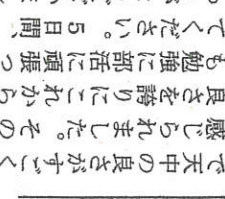 で天中の良さがすごく
感じられました。その
良さを誇りにこれから
も勉強に部活に頑張っ
てください。5日間、